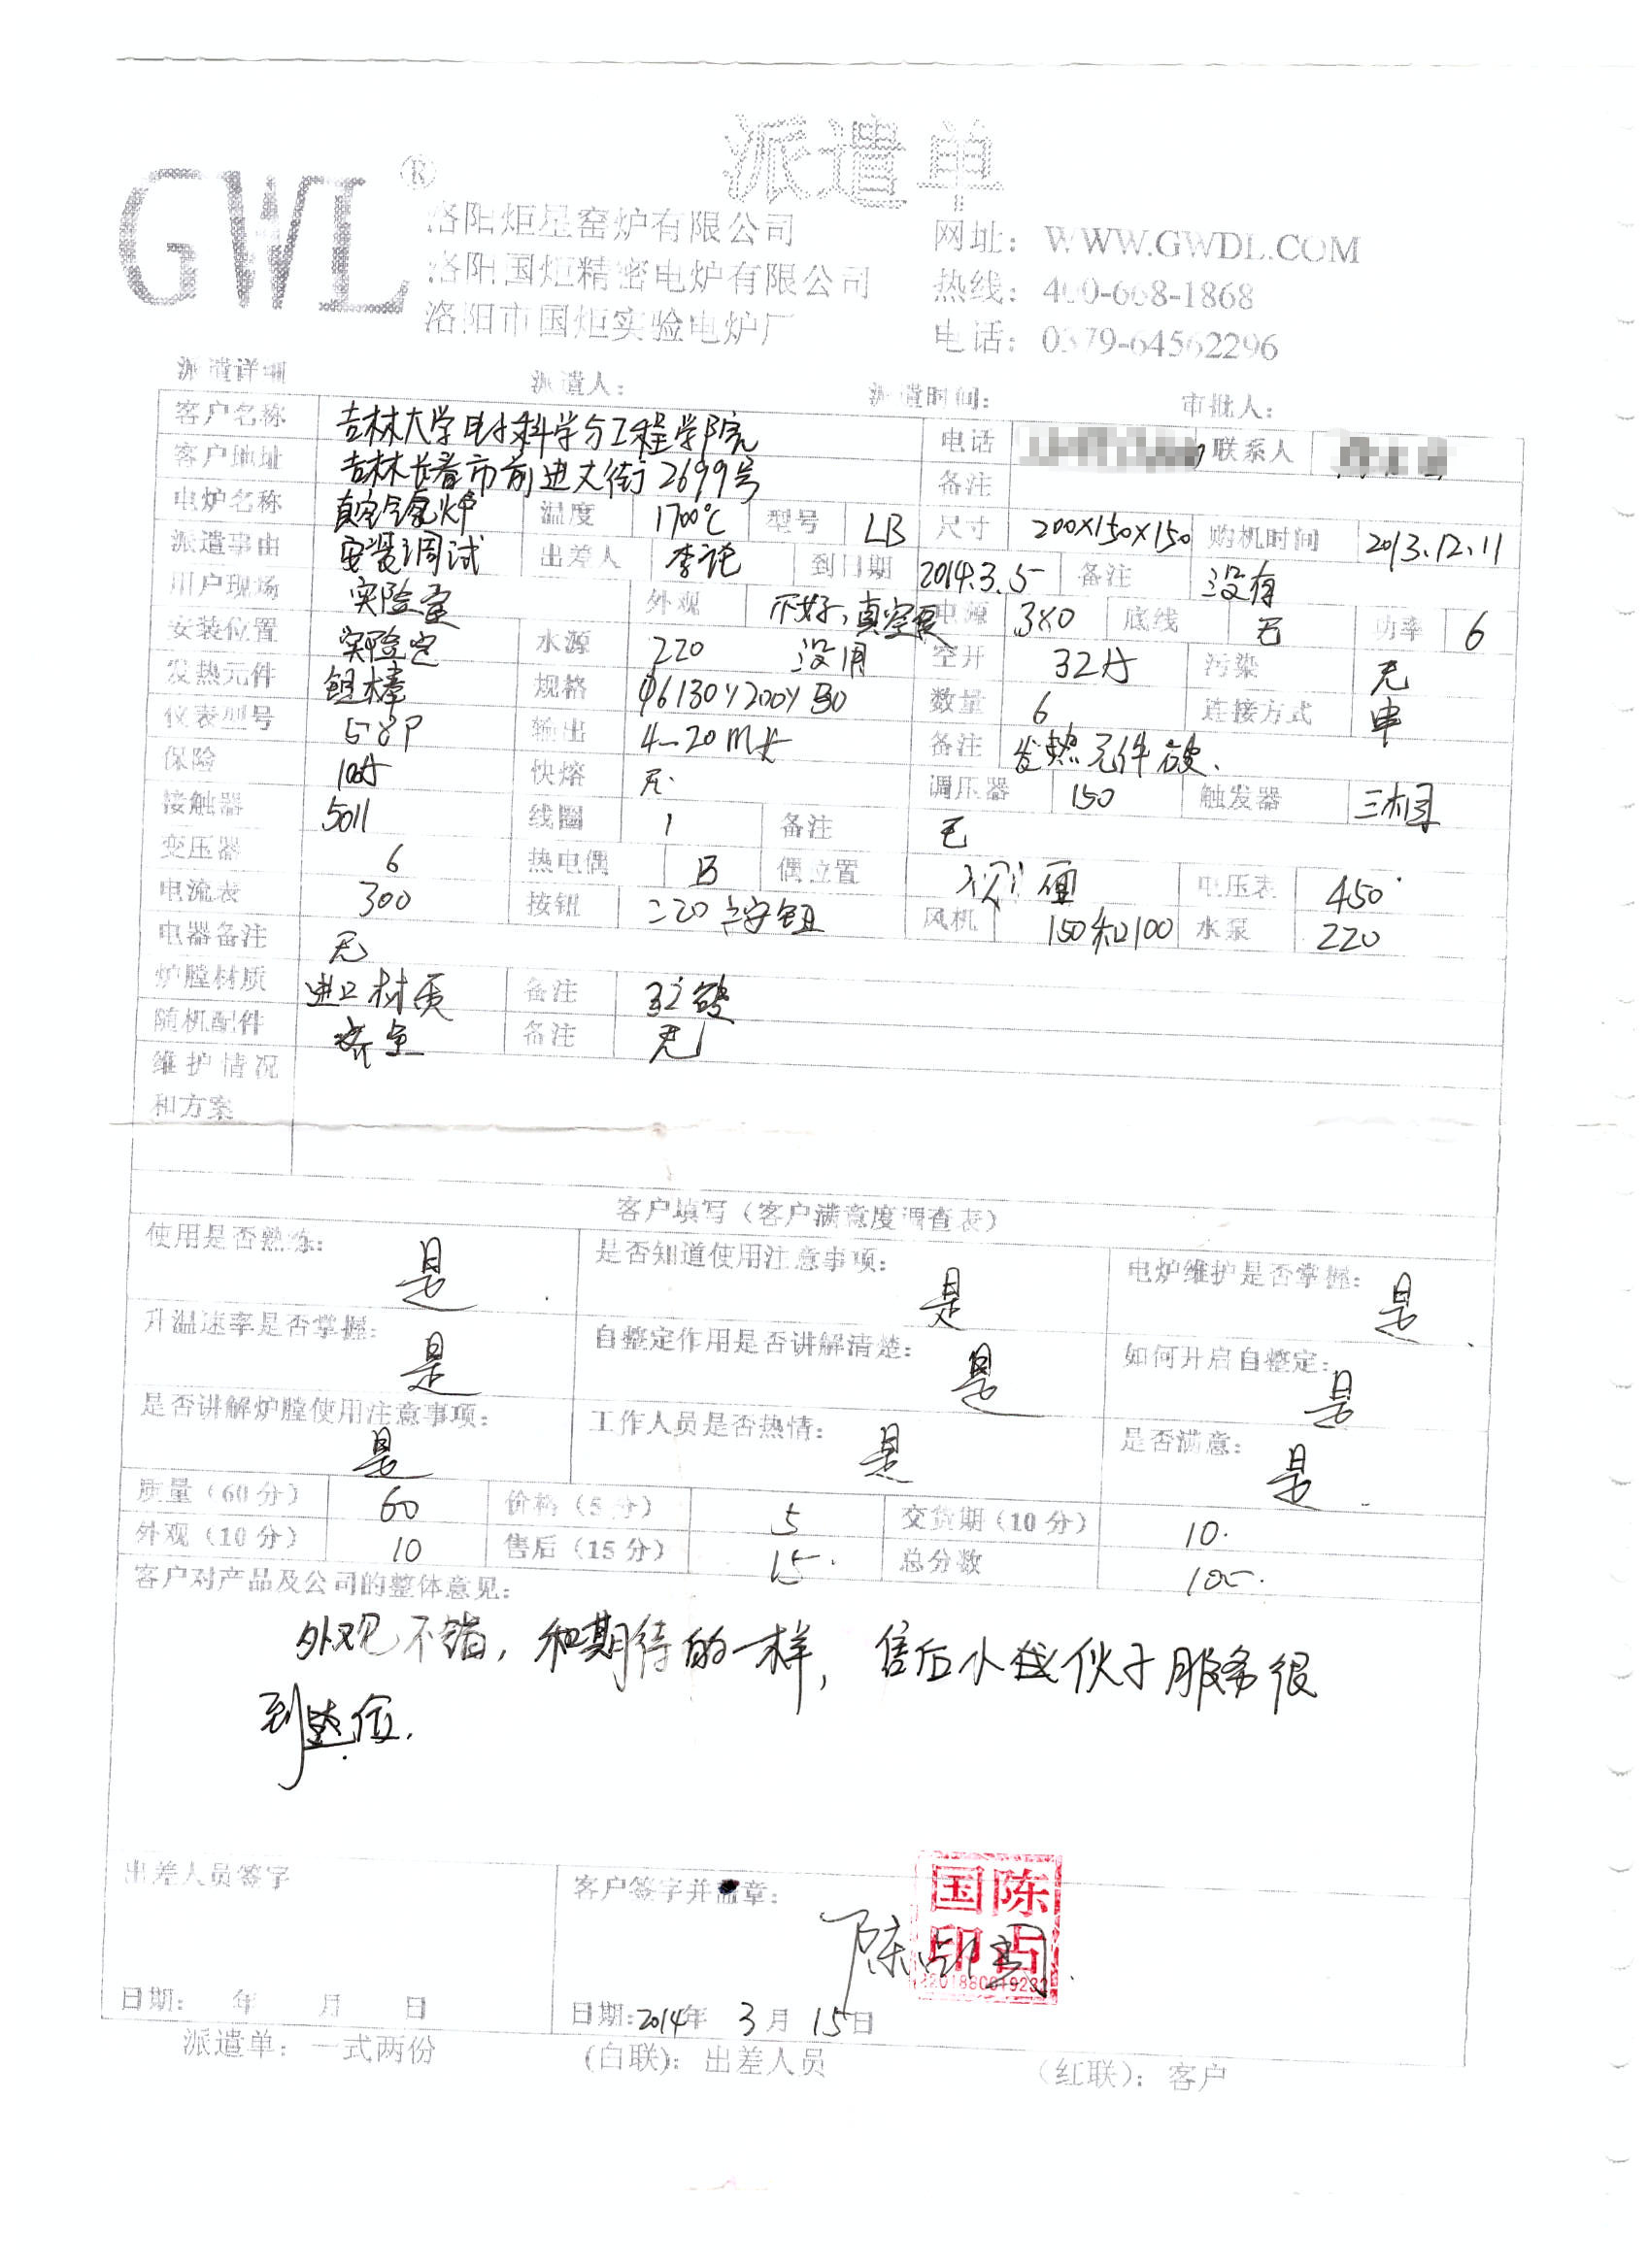 派遣单
GWL®
洛阳炬星窑炉有限公司 网址：WWW.GWDL.COM
洛阳国炬精密电炉有限公司 热线：400-668-1868
洛阳市国炬实验电炉厂 电话：0379-64562296
派遣详细 派遣人： 派遣时间： 审批人：
客户名称 吉林大学电子科学与工程学院 电话 联系人
客户地址 吉林长春市前进大街2699号 备注
电炉名称 真空气氛炉 温度 1700℃ 型号 LB 尺寸 200×150×150 购机时间 2013.12.11
派遣事由 安装调试 出差人 李 到日期 2014.3.5 备注 没有
用户现场 实验室 外观 不好，真空泵没用 电源 380 底线 无 功率 6
安装位置 实验室 水源 220 空开 32A 污染 无
发热元件 钼棒 规格 数量 6 连接方式 串
仪表型号 58P 输出 4-20mA 备注 发热元件
保险 10A 快熔 无 调压器 150 触发器 三相
接触器 5011 线圈 1 备注 无
变压器 6 热电偶 B 偶位置 面 电压表 450
电流表 300 按钮 220按钮 风机 150和100 水泵 220
电器备注 无
炉膛材质 进口材质 备注
随机配件 齐全 备注 无
维护情况
和方案
客户填写（客户满意度调查表）
使用是否熟练： 是 是否知道使用注意事项： 是 电炉维护是否掌握： 是
升温速率是否掌握： 是 自整定作用是否讲解清楚： 是 如何开启自整定： 是
是否讲解炉膛使用注意事项： 是 工作人员是否热情： 是 是否满意： 是
质量（60分） 60 价格（5分） 5 交货期（10分） 10.
外观（10分） 10 售后（15分） 15. 总分数 100.
客户对产品及公司的整体意见：
外观不错，和期待的一样，售后小伙子服务很
到位.
出差人员签字 客户签字并盖章： 陈
国陈
印占
日期： 年 月 日 日期：2014年 3月 15日
派遣单：一式两份 (白联)：出差人员 （红联）：客户